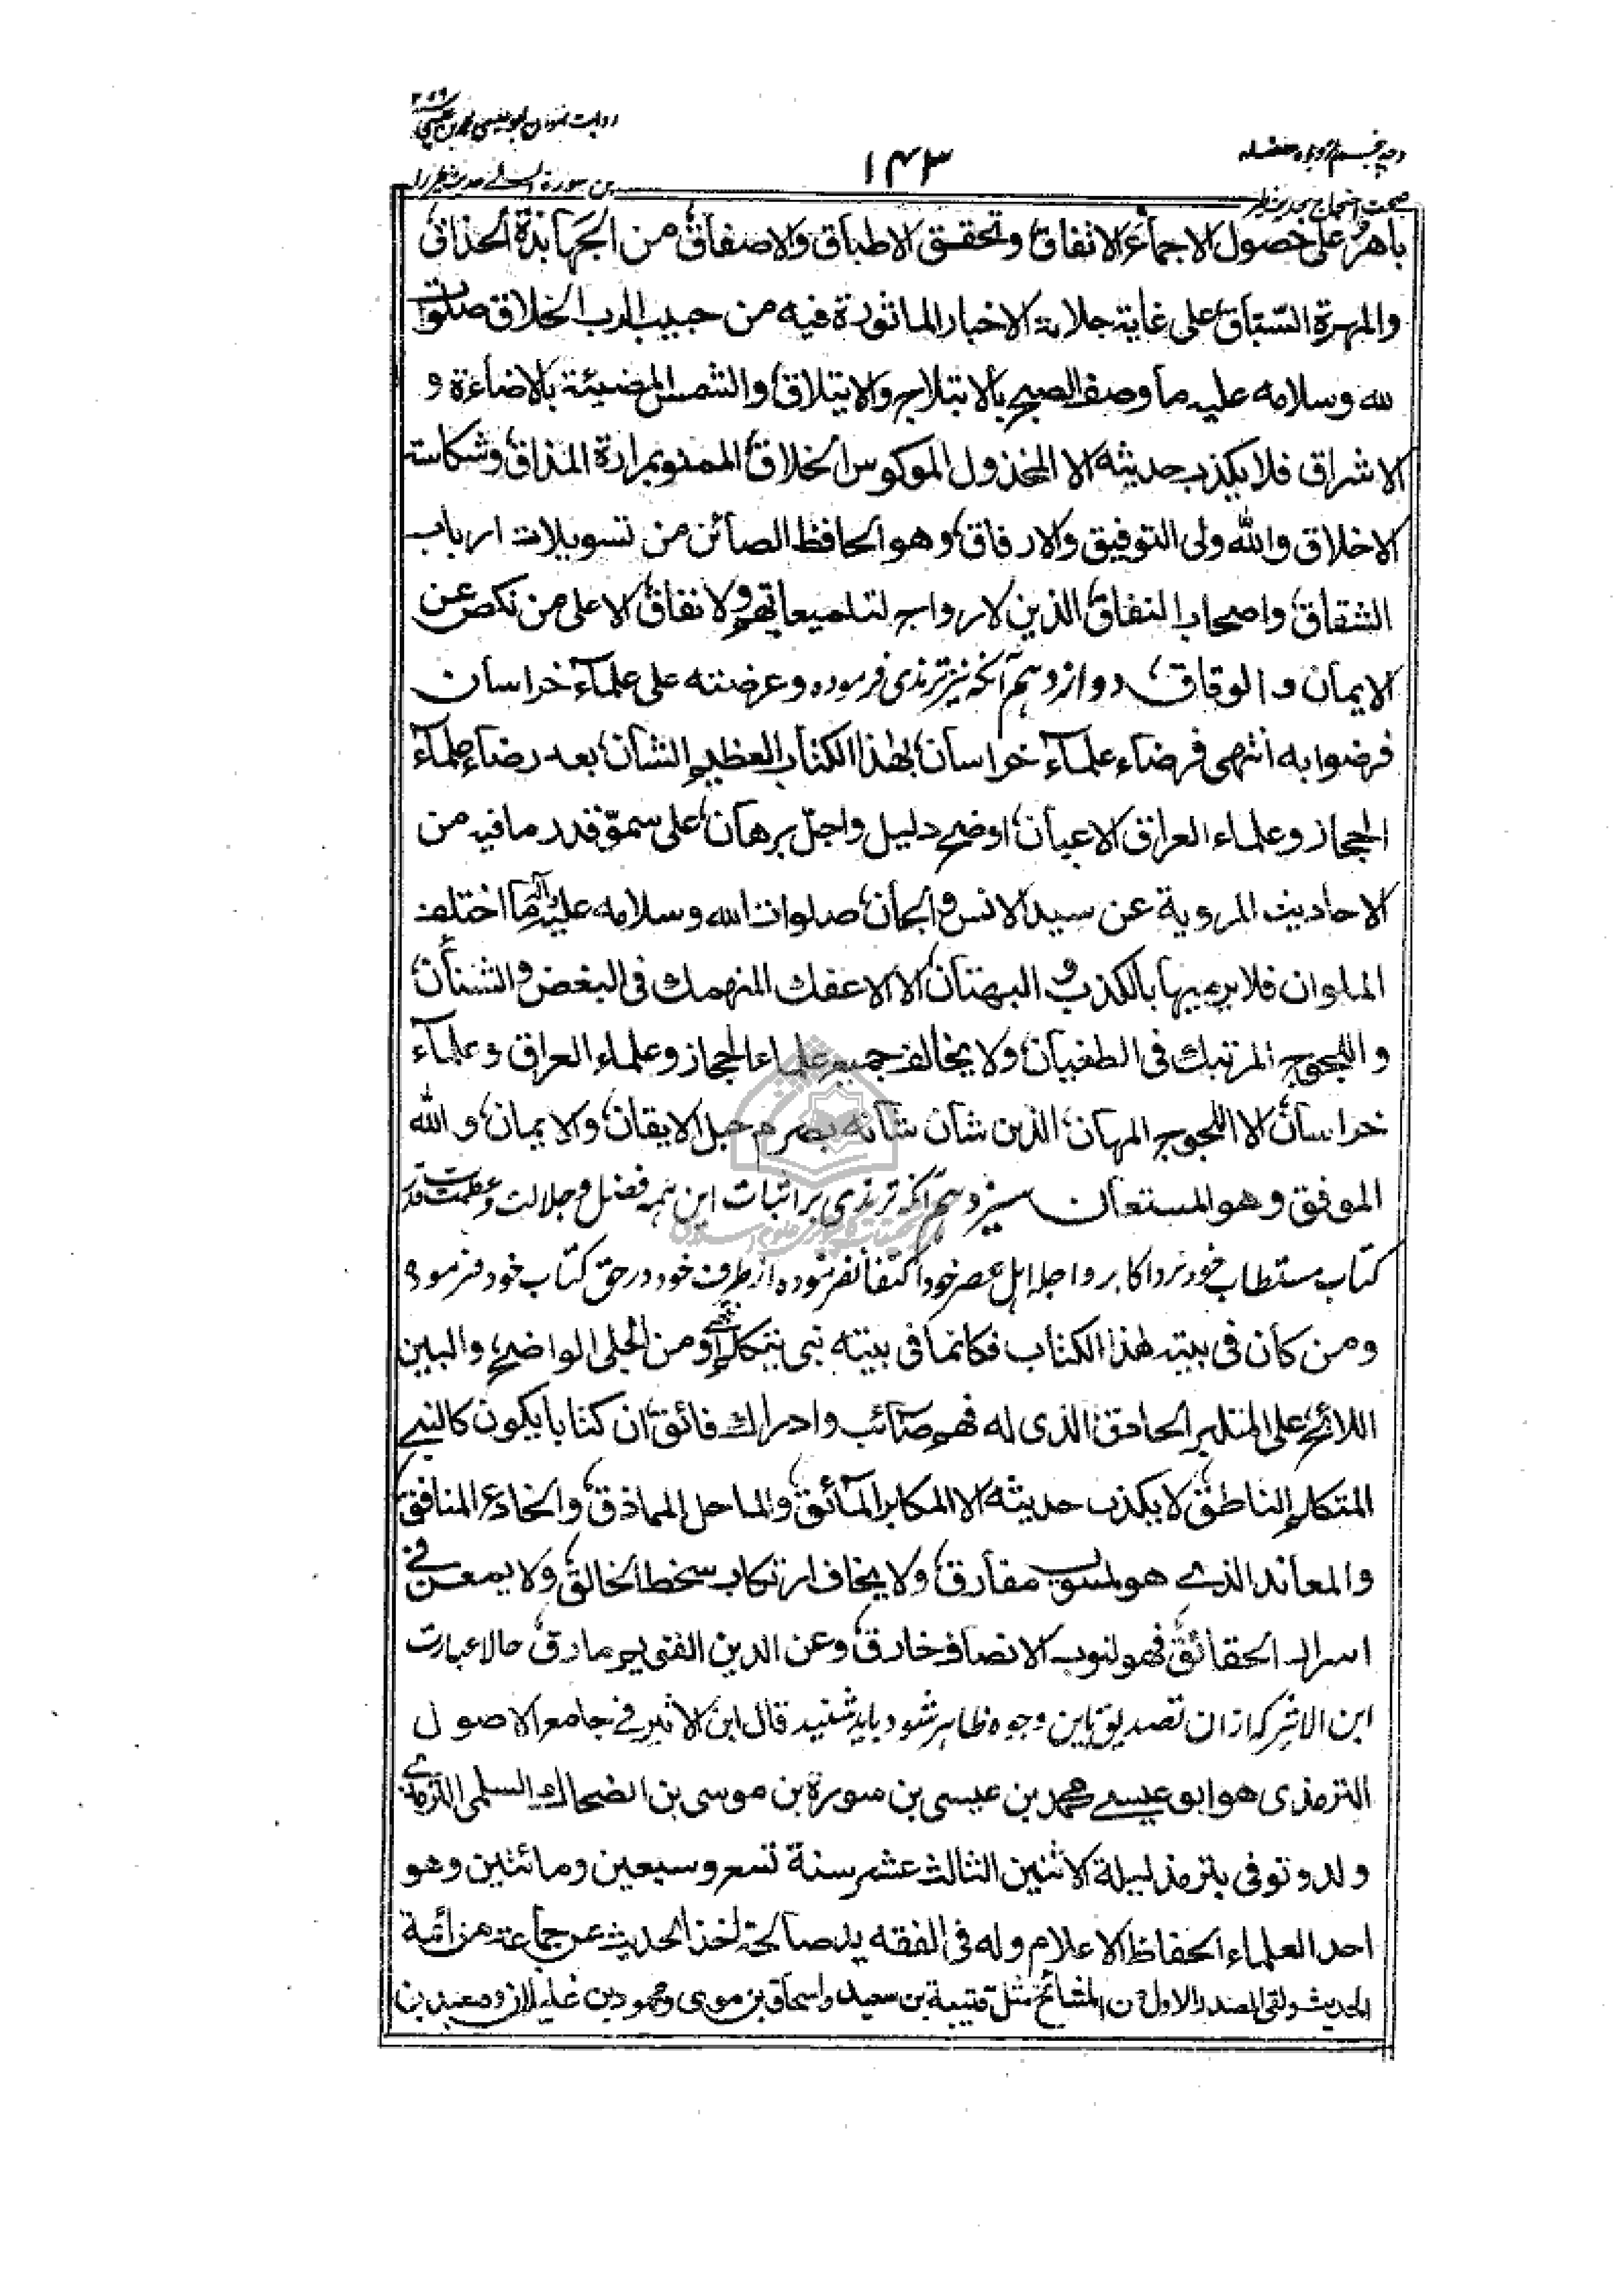 روایت نمودن ابو عیسی محمد بن عیسی
بن سورة
۱۴۳
باهر علی حصول الاجماع والاتفاق وتحقق الاطباق والاصفاق من الجهابذة الحذاق
والمهرة السباق علی غایة جلالة الاخبار الماثورة فیه من حبیب الرب الخلاق صلوات
لله وسلامه علیه ما وصف الصبح بالابتلاج والایتلاق والشمس المضیئة بالاضاءة و
الاشراق فلا یکذب حدیثه الا المخذول الموکوس الخلاق الممنو بمرارة المذاق وشکاسة
الاخلاق والله ولی التوفیق والارفاق وهو الحافظ الصائن من تسویلات ارباب
الشقاق واصحاب النفاق الذین لا رواج لتلمیعاتهم ولا نفاق الا علی من نکص عن
الایمان والوفاق دوازدهم آنکه نیز ترمذی فرموده وعرضته علی علماء خراسان
فرضوا به انتهی فرضاء علماء خراسان بهذا الکتاب العظیم الشان بعد رضاء علماء
الحجاز وعلماء العراق الاعیان اوضح دلیل واجل برهان علی سمو قدر ما فیه من
الاحادیث المرویة عن سید الانس والجان صلوات الله وسلامه علیه واله ما اختلف
الملوان فلا یرمیها بالکذب والبهتان الا الاعفك المنهمك فی البغض والشنآن
واللجوج المرتبك فی الطغیان ولا یخالف جمیع علماء الحجاز وعلماء العراق وعلماء
خراسان الا اللجوج المهان الذی شان شانه بصرم حبل الایقان والایمان والله
الموفق وهو المستعان سیزدهم آنکه ترمذی بر اثبات این همه فضل وجلالت وعظمت قدر
کتاب مستطاب خود نزد اکابر واجله اهل عصر خود اکتفا نفرموده از طرف خود در حق کتاب خود فرموده
ومن کان فی بیته هذا الکتاب فکانما فی بیته نبی یتکلم انتهی ومن الجلی الواضح والبین
اللائح علی المتدبر الحاذق الذی له فهم صائب وادراك فائق ان کتابا یکون کالنبی
المتکلم الناطق لا یکذب حدیثه الا المکابر المائق والماحل المماذق والخادع المنافق
والمعاند الذی هو للب مفارق ولا یخاف ارتکاب سخط الخالق ولا یمعن فی
اسرار الحقائق فهو لثوب الانصاف خارق وعن الدین القویم مارق حالا عبارت
ابن الاثیر که ازان تصدیق این وجوه ظاهر شود باید شنید قال ابن الاثیر فی جامع الاصول
الترمذی هو ابو عیسی محمد بن عیسی بن سورة بن موسی بن الضحاك السلمی الترمذی
ولد وتوفی بترمذ لیلة الاثنین الثالث عشر سنة تسع وسبعین ومائتین وهو
احد العلماء الحفاظ الاعلام وله فی الفقه ید صالحة اخذ الحدیث عن جماعة من ائمة
الحدیث ولقی الصدر الاول من المشائخ مثل قتیبة بن سعید واسحاق بن موسی ومحمود بن غیلان وسعید بن